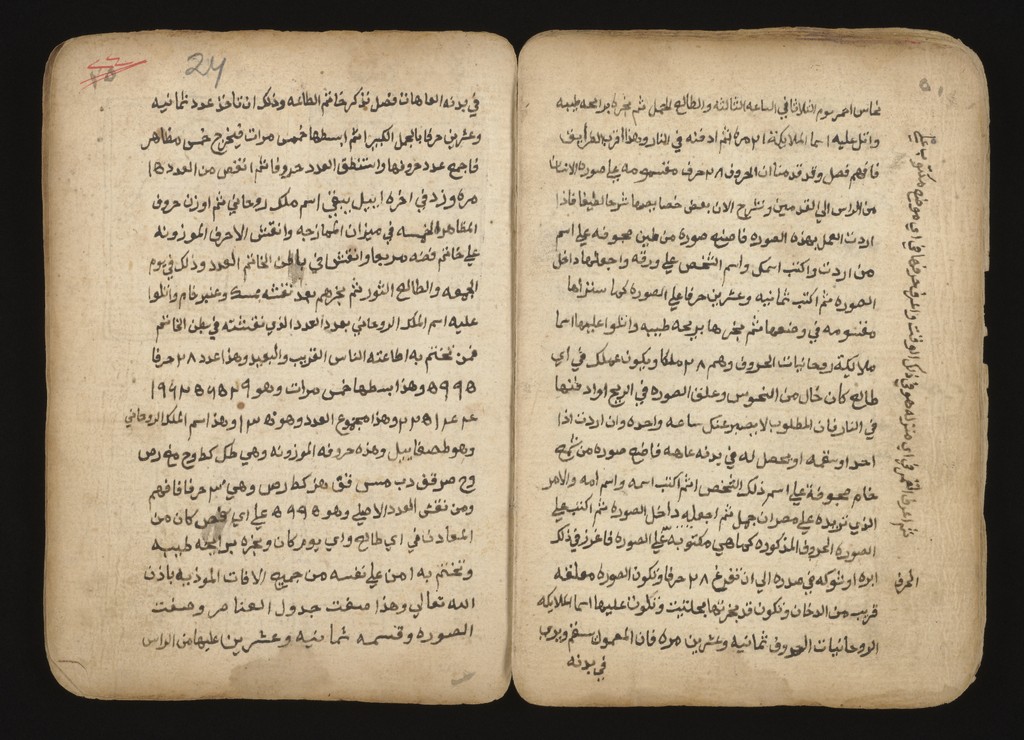 نحاس احمر يوم الثلاثا في الساعه الثالثه والطالع الحمل ثم بخره برايحه طيبه
واتل عليه اسما الملايكة ٢١ مره ثم ادفنه في النار وهذا اقرب الطرايق
فافهم فصل وقد قدمنا ان الحروف ٢٨ حرف مقسومه على صورة الانسان
من الراس الى القدمين ونشرح الان بعض خصايصها شرحا لطيفا فاذا
اردت العمل بهذه الصوره فاصنع صوره من طين معجونه على اسم
من اردت واكتب اسمك واسم الشخص على ورقة واجعلها داخل
الصوره ثم اكتب ثمانيه وعشرين حرفا على الصوره كما سنراها
مقسومه في وضعها ثم بخرها بريحه طيبه واتلوا عليها اسما
ملايكة روحانيات الحروف وهم ٢٨ ملكا ويكون عملك في اي
طالع كان خال من النحوس وعلق الصوره في الريح او ادفنها
في النار فان المطلوب لا يصبر عنك ساعه واحده وان اردت اذا
احد او سقمه او يحصل له في بدنه عاهه فاصنع صوره من شمع
خام معجونة على اسم ذلك الشخص ثم اكتب اسمه واسم امه والامر
الذي تريده على مصران جمل ثم اجعله داخل الصوره ثم اكتب على
الصوره الحروف المذكوره كما هي مكتوبة على الصوره فاغرز في ذلك
ابره او شوكه في صدره الى ان تفرغ ٢٨ حرفا وتكون الصوره معلقه
قريب من الدخان وتكون قد بخرتها بحلتيت وتكون عليها اسما الملايكه
الروحانيات الحروف ثمانيه وعشرين مره فان المعمول سقم ويرمى
في بدنه
الحرف
في بدنه العاهات فصل نذكر خاتم الطاعه وذلك ان تاخذ عدد ثمانيه
وعشرين حرفا بالجمل الكبير ثم ابسطها خمس مرات فيخرج خمس مظاهر
فاجمع عدد حروفها واستنطق العدد حروفا ثم انقص من العدد ١٥
مره وزد في اخره اييل يبقى اسم ملك روحاني ثم اوزن حروف
المظاهر الخمسه في ميزان الممازجه وانقش الاحرف الموزونه
على خاتم فضه مربعا وانقش في باطن الخاتم العدد وذلك في يوم
الجمعه والطالع الثور ثم بخرهم بعد نقشه بمسك وعنبر خام واتلوا
عليه اسم الملك الروحاني بعدد العدد الذي نقشته في بطن الخاتم
فمن تختم به اطاعته الناس القريب والبعيد وهذا عدد ٢٨ حرفا
٥٩٩٥ وهذا ابسطها خمس مرات وهو
وهذا مجموع العدد وهو وهذا اسم الملك الروحاني
وهو طصغاييل وهذه حروفه الموزونه وهي طل كط وح مع رص
وج صر قق دب مسى قق هز كط رص وهي حرفا فافهم
ومن نقش العدد الاصلي وهو ٥٩٩٥ على اي فص كان من
المعادن في اي طالع واي يوم كان وبخره برايحه طيبه
وتختم به امن على نفسه من جميع الافات الموذيه باذن
الله تعالى وهذا صفت جدول العناصر وصفت
الصوره وقسمه ثمانيه وعشرين عليها من الراس
24